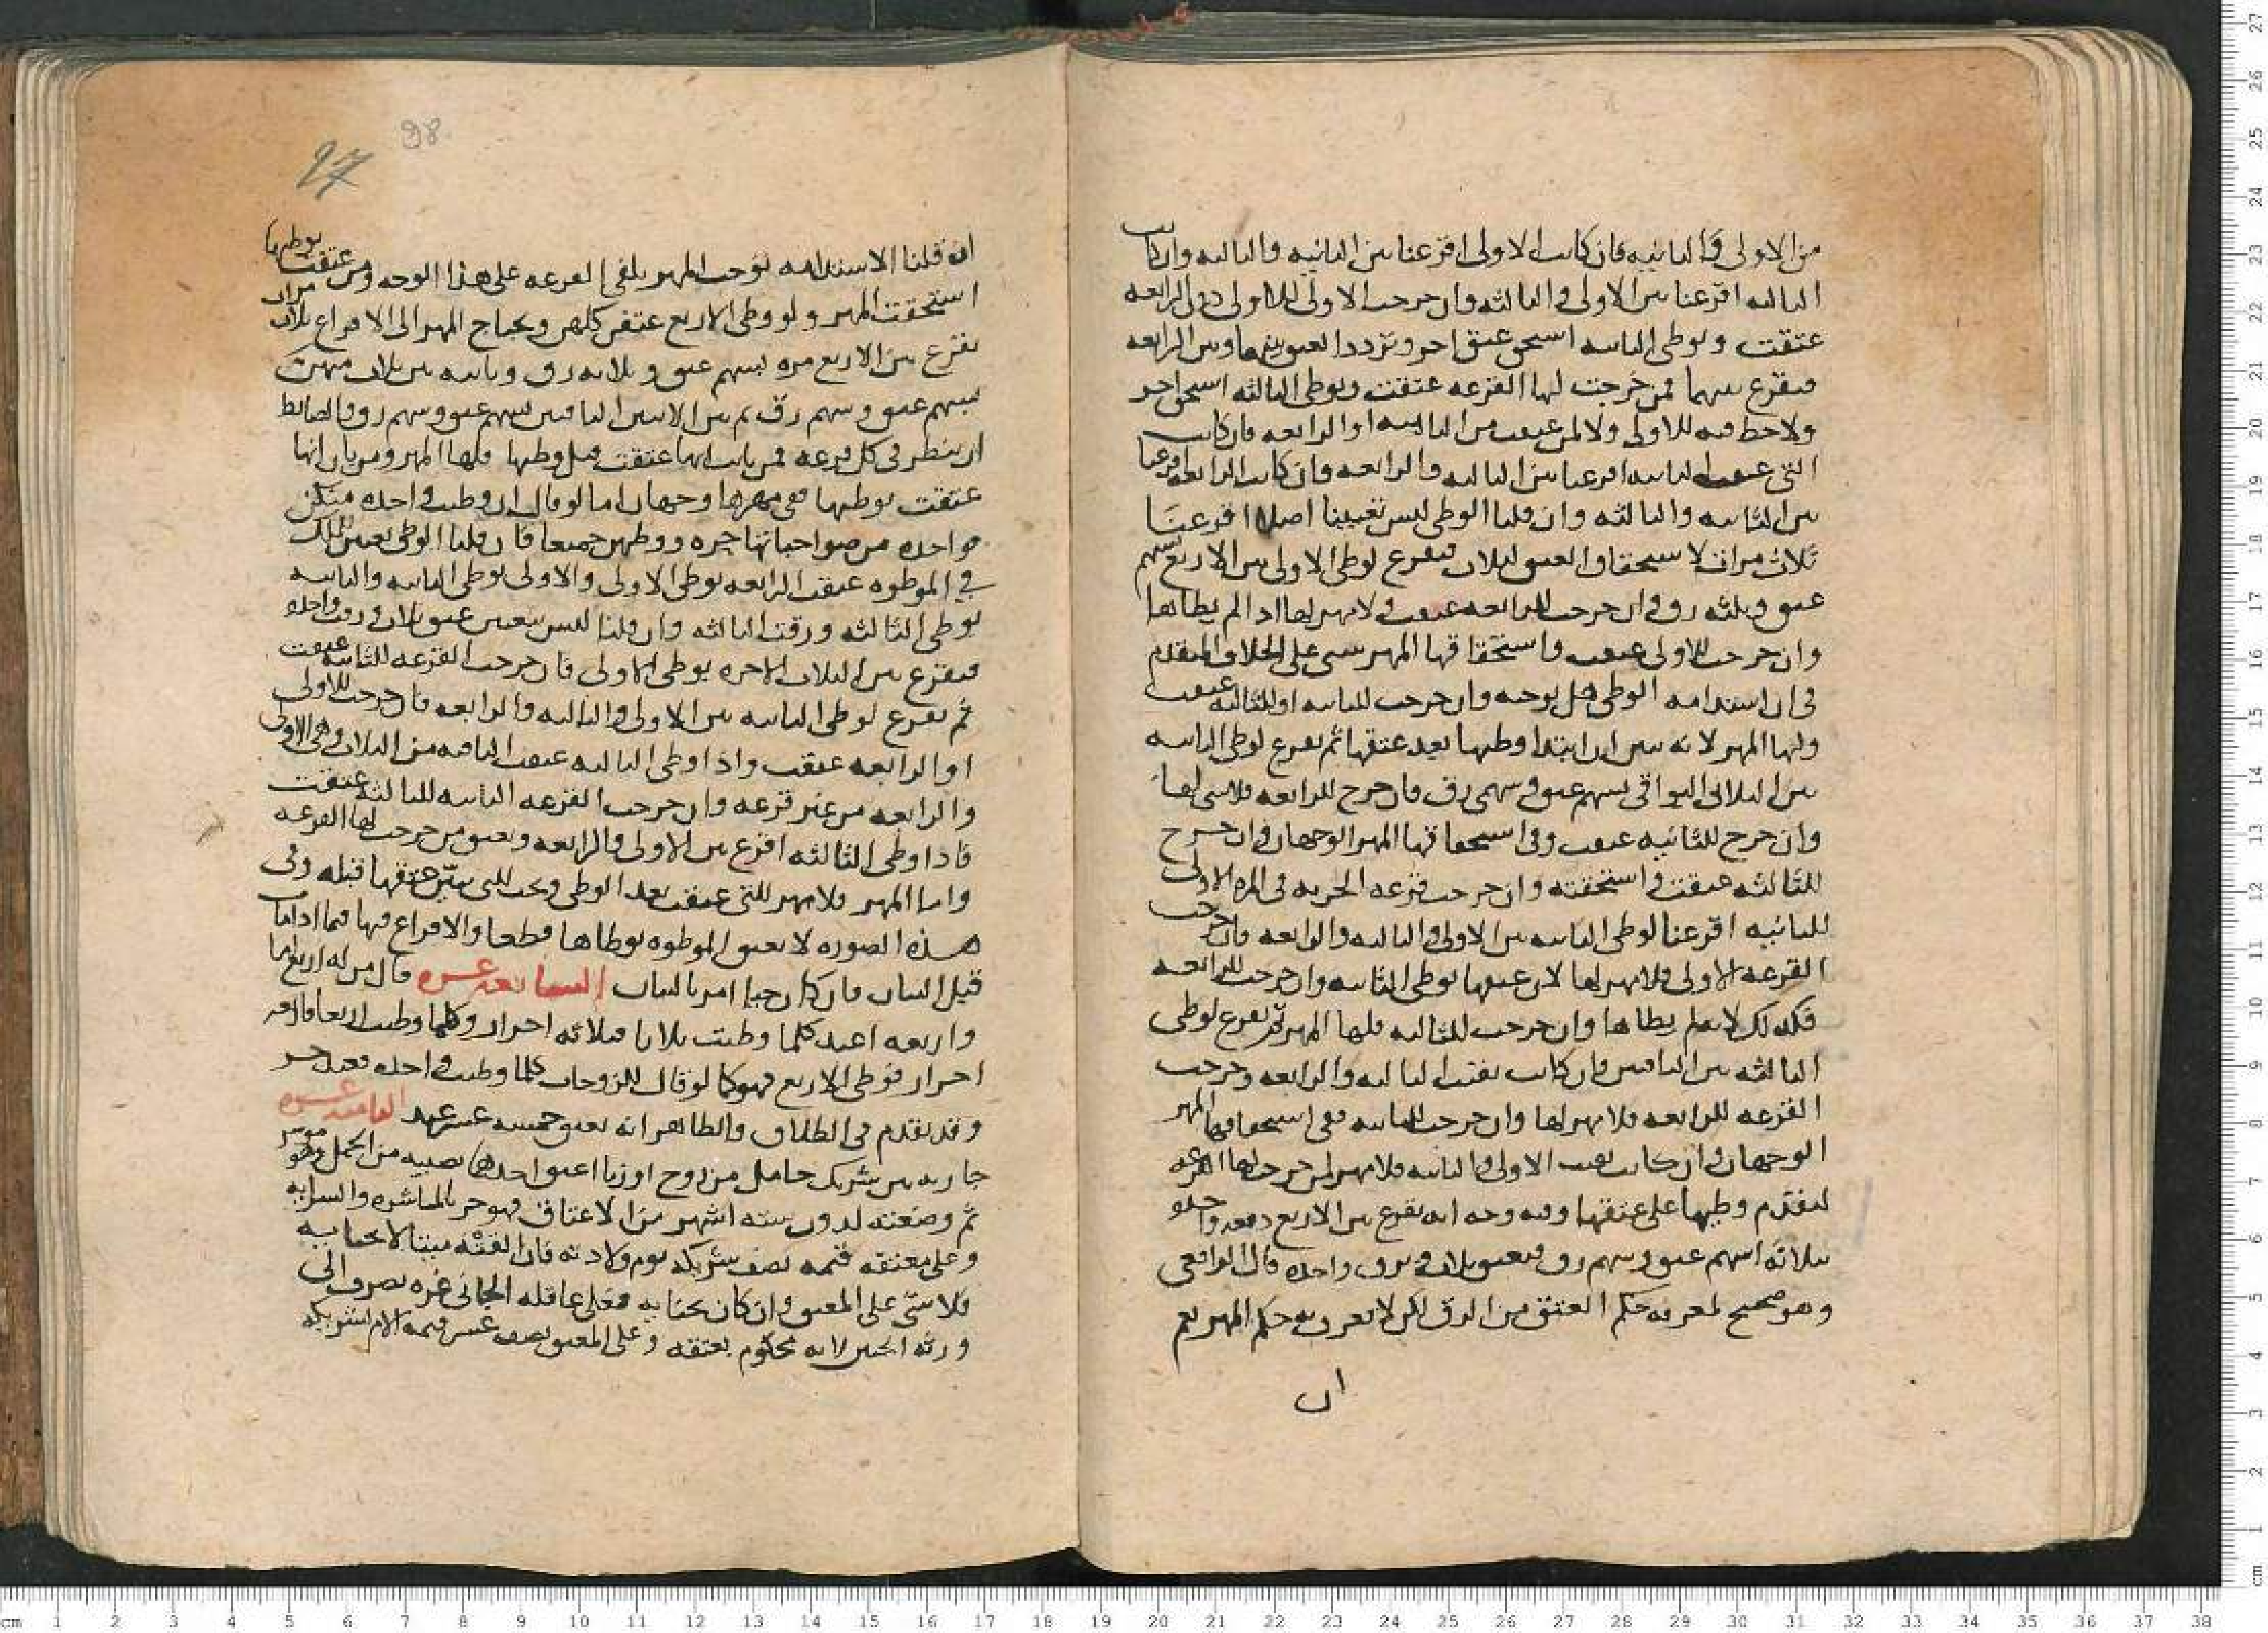 من الاولى والثانيه فان كانت الاولى اقرعنا بين الثانيه والثالثه وان كانت
الثالثه اقرعنا بين الاولى والثالثه وان خرجت الاولى للاولى دون الرابعه
عتقت وبوطى الثانيه استحق عتق اخر وتردد العتق بينها وبين الرابعه
فيقرع بينهما فمن خرجت لها القرعه عتقت وبوطى الثالثه استحق اخر
ولا حظ فيه للاولى ولا لمن عتقت من الثانيه او الرابعه فان كانت
التى عتقت الثانيه اقرعنا بين الثالثه والرابعه وان كانت الرابعه اقرعنا
بين الثانيه والثالثه وان قلنا الوطى ليس تعيينا اصلا اقرعنا
ثلاث مرات لاستحقاق العتق لثلاث فيقرع لوطى الاولى بين الاربع بسهم
عتق وثلثه رق فان خرجت للرابعه عتقت ولا مهر لها اذ لم يطاها
وان خرجت للاولى عتقت واستحقاقها المهر يبنى على الخلاف المتقدم
فى ان استدامه الوطى هل توجبه وان خرجت للثانيه او للثالثه عتقت
ولها المهر لانه تبين ان ابتدا وطيها بعد عتقها ثم يقرع لوطى الثانيه
بين الثلاث البواقى بسهم عتق وسهمى رق فان خرج للرابعه فلا شى لها
وان خرج للثانيه عتقت وفى استحقاقها المهر الوجهان وان خرج
للثالثه عتقت واستحقته وان خرجت قرعه الحريه فى المره الاولى
للثانيه اقرعنا لوطى الثانيه بين الاولى والثالثه والرابعه فان خرجت
القرعه للاولى فلا مهر لها لان عتقها بوطى الثانيه وان خرجت للرابعه
فكذلك لانه لم يطاها وان خرجت للثالثه فلها المهر ثم يقرع لوطى
الثالثه بين الباقيتين فان كانت بقيت الثالثه والرابعه وخرجت
القرعه للرابعه فلا مهر لها وان خرجت للثالثه ففى استحقاقها المهر
الوجهان وان كانت بقيت الاولى والثانيه فلا مهر لمن خرجت لها القرعه
لتقدم وطيها على عتقها وفيه وجه انه يقرع بين الاربع دفعه واحده
بثلاثه اسهم عتق وسهم رق فيعتق ثلاث وترق واحده قال الرافعى
وهو صحيح لمعرفه حكم العتق من الرق لكن لا يعرف به حكم المهر نعم
ان
98
97
ان قلنا الاستدامه توجب المهر يلقى القرعه على هذا الوجه ومن عتقت بوطيها
استحقت المهر ولو وطى الاربع عتقن كلهن ويحتاج المهر الى الاقراع ثلاث مرات
يقرع بين الاربع مره بسهم عتق وثلاثه رق وثانيه بين ثلاث منهن
بسهم عتق وسهم رق ثم بين الاثنين الباقيتين بسهم عتق وسهم رق والضابط
ان ينظر فى كل قرعه فمن بانت انها عتقت قبل وطيها فلها المهر ومن بان انها
عتقت بوطيها ففى مهرها وجهان اما لو قال ان وطيت واحده منكن
فواحده من صواحباتها حره ووطيهن جميعا فان قلنا الوطى تعيين للملك
فى الموطوه عتقت الرابعه بوطى الاولى والاولى بوطى الثانيه والثانيه
بوطى الثالثه ورقت الثالثه وان قلنا ليس بتعيين عتق ثلاث ورقت واحده
فيقرع بين الثلاث الاخره بوطى الاولى فان خرجت القرعه للثانيه عتقت
ثم يقرع لوطى الثانيه بين الاولى والثالثه والرابعه فان خرجت للاولى
او الرابعه عتقت واذا وطى الثالثه عتقت الباقيه من الثلاث وهى الاولى
والرابعه من غير قرعه وان خرجت القرعه الثانيه للثالثه عتقت
فاذا وطى الثالثه اقرع بين الاولى والرابعه ويعتق من خرجت لها القرعه
واما المهر فلا مهر للتى عتقت بعد الوطى ويجب للتى تبين عتقها قبله وفى
هذه الصوره لا يعتق الموطوه بوطاها قطعا والاقراع فيها فيما اذا مات
قبل البيان فان كان حيا امر بالبيان السابعه عشره قال من له اربع اما
واربعه اعبد كلما وطيت ثلاثا فثلاثه احرار وكلما وطيت اربعا فاربعه
احرار فوطى الاربع فهو كما لو قال للزوجات كلما وطيت واحده فعبد حر
وقد تقدم فى الطلاق والظاهر انه يعتق خمسه عشر عبد الثامنه عشره
جاريه بين شريك حامل من زوج او زنا اعتق احدهما نصيبه من الحمل وهو موسر
ثم وضعته لدون سته اشهر من الاعتاق فهو حر بالمباشره والسرايه
وعلى معتقه قيمه نصف شريكه يوم ولادته فان القته ميتا لا بجنايه
فلا شى على المعتق وان كان بجنايه فعلى عاقله الجانى غره تصرف الى
ورثه الجنين لانه محكوم بعتقه وعلى المعتق نصف عشر قيمه الام لشريكه